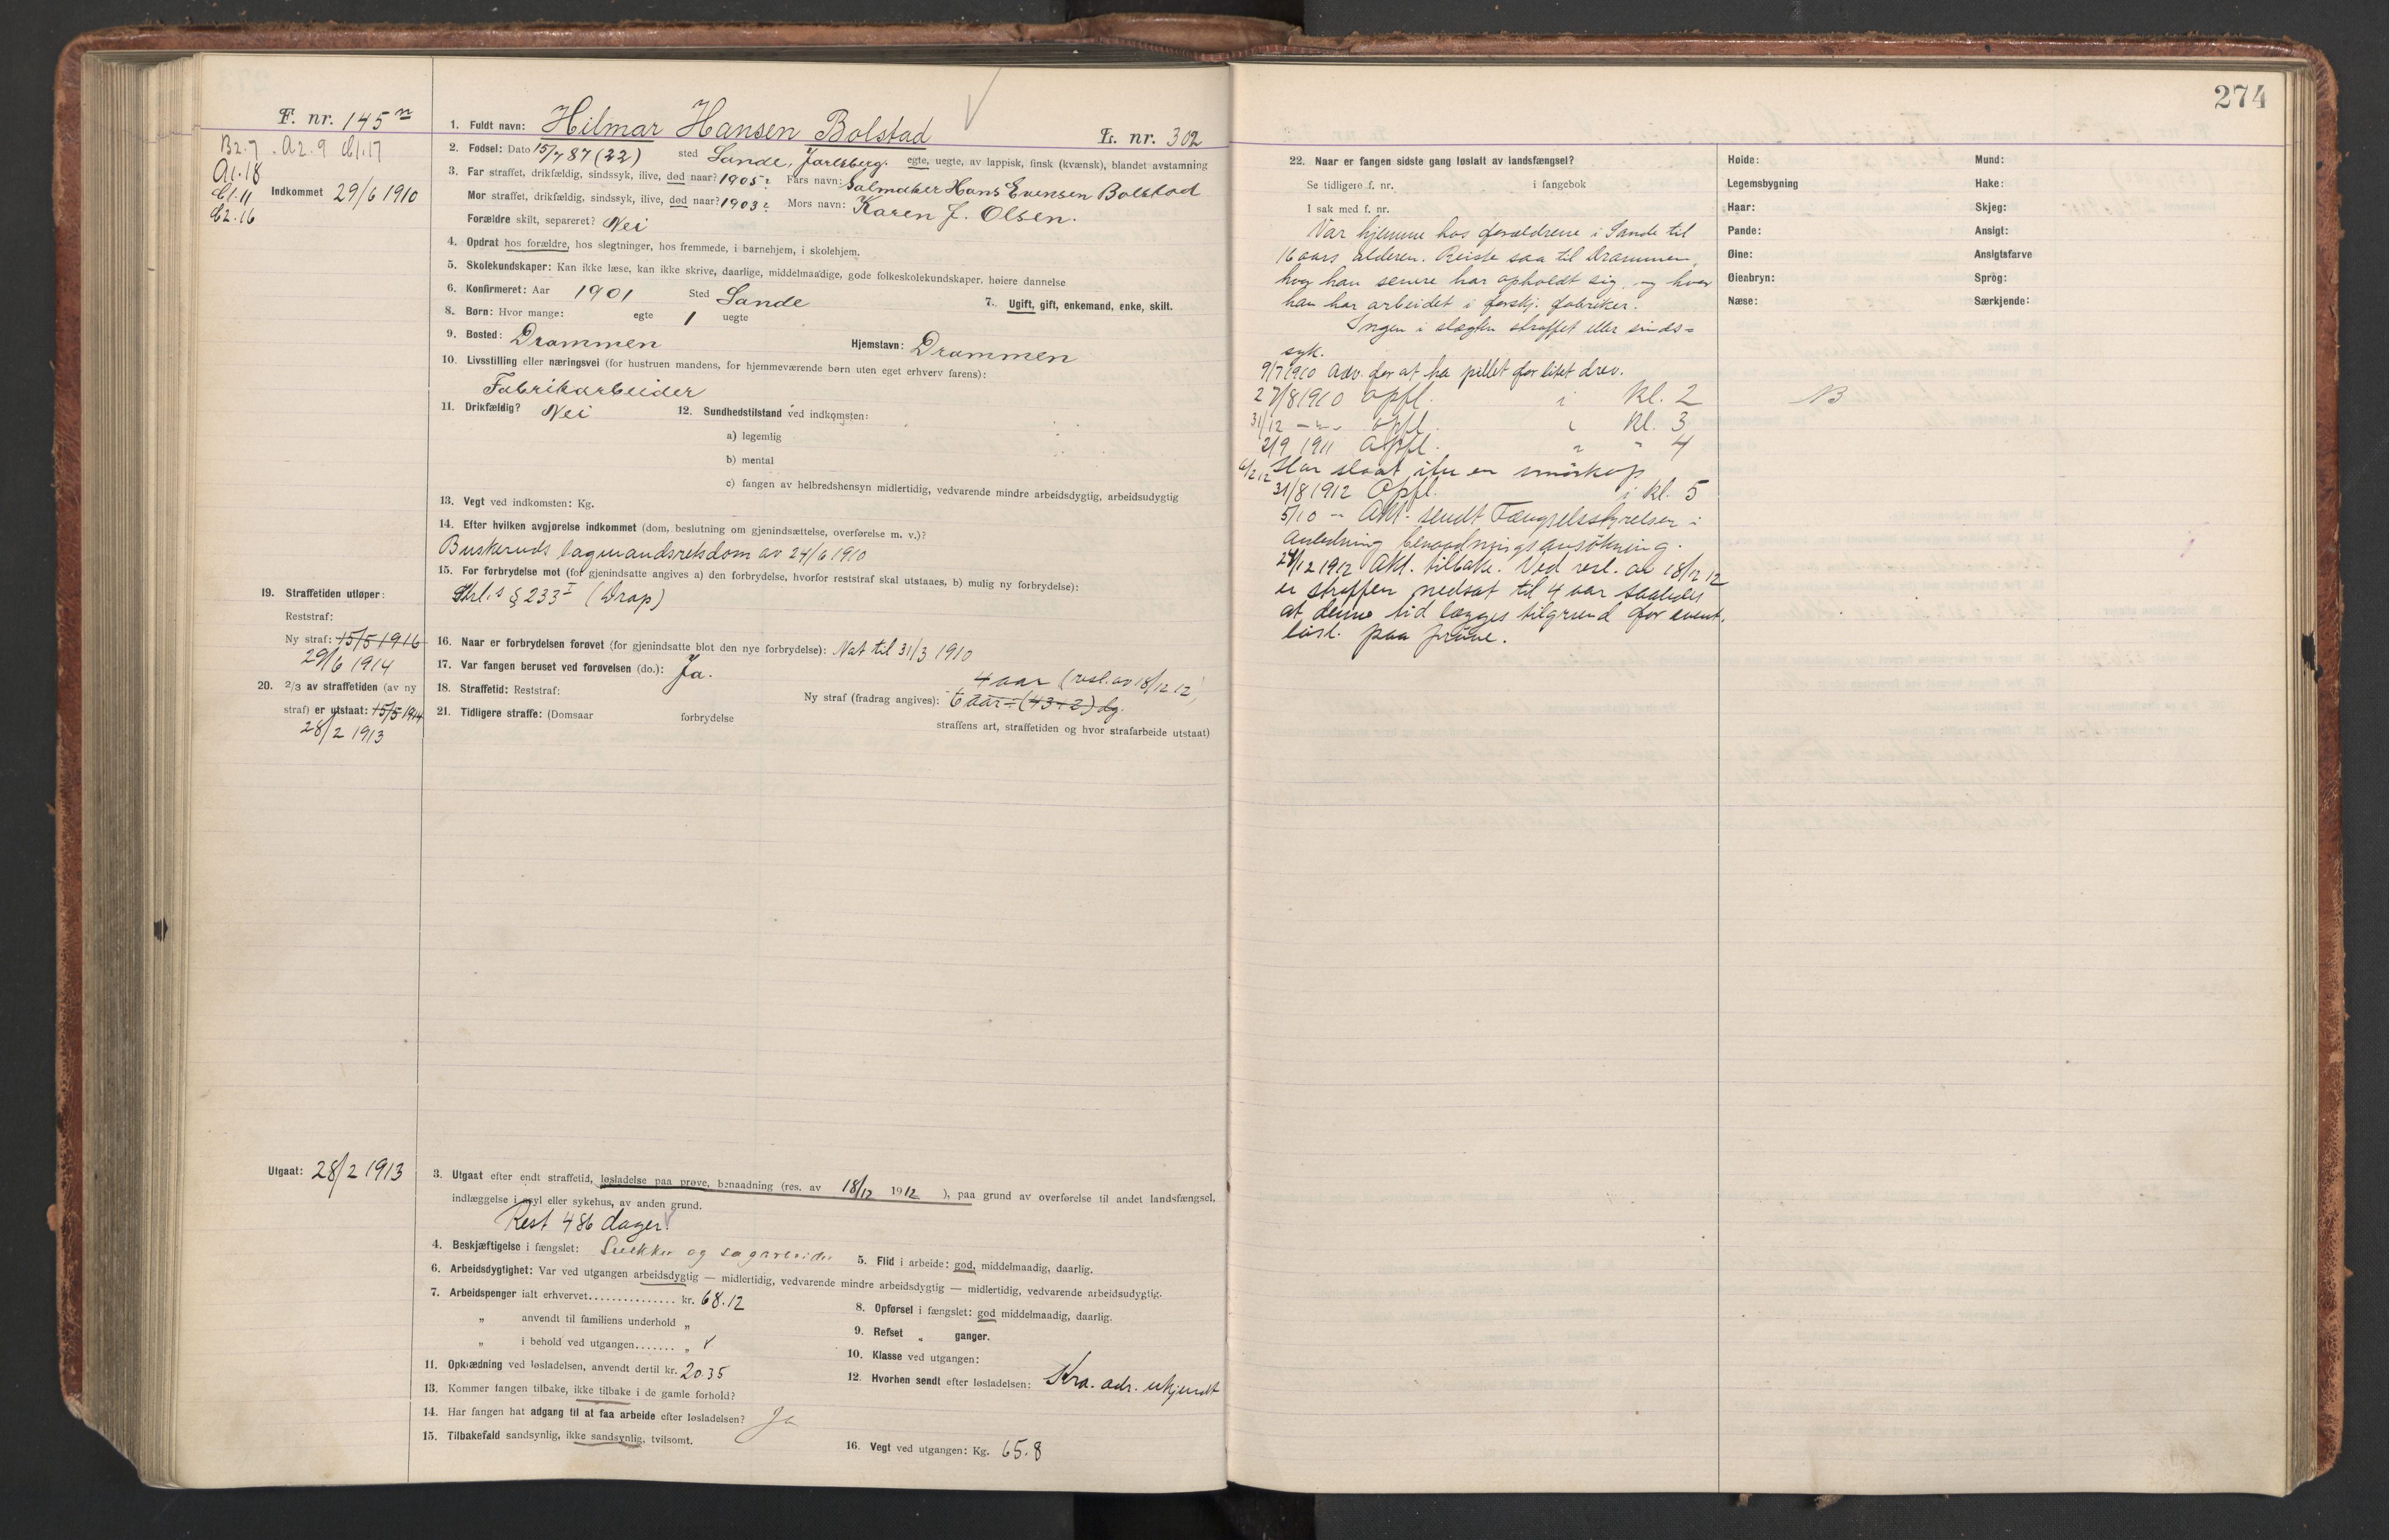 F. nr. 145 n
B2.7 . A2.9 C1.17
A1.18
C1.11
C2.16
Indkommet 29/6 1910
1. Fuldt navn: Hilmar Hansen Bolstad E. nr. 302
2. Fødsel: Dato 15/7 87 (22) sted Sande, Jarlsberg. egte, uegte, av lappisk, finsk (kvænsk), blandet avstamning
3. Far straffet, drikfældig, sindssyk, ilive, død naar? 1905? Fars navn: Salmaker Hans Evensen Bolstad
Mor straffet, drikfældig, sindssyk, ilive, død naar? 1903? Mors navn: Karen J. Olsen.
Forældre skilt, separeret? Nei
4. Opdrat hos forældre, hos slegtninger, hos fremmede, i barnehjem, i skolehjem.
5. Skolekundskaper: Kan ikke læse, kan ikke skrive, daarlige, middelmaadige, gode folkeskolekundskaper. høiere dannelse
6. Konfirmeret: Aar 1901 Sted Sande 7. Ugift, gift, enkemand, enke, skilt.
8. Børn: Hvor mange: egte 1 uegte
9. Bosted: Drammen Hjemstavn: Drammen
10. Livsstilling eller næringsvei (for hustruen mandens, for hjemmeværende børn uten eget erhverv farens):
Fabrikarbeider
11. Drikfældig? Nei 12. Sundhedstilstand ved indkomsten:
a) legemlig
b) mental
c) fangen av helbredshensyn midlertidig, vedvarende mindre arbeidsdygtig, arbeidsudygtig
13. Vegt ved indkomsten: Kg.
14. Efter hvilken avgjørelse indkommet (dom, beslutning om gjenindsættelse, overførelse m. v.)?
Buskeruds lagmandsretsdom av 24/6 1910
15. For forbrydelse mot (for gjenindsatte angives a) den forbrydelse, hvorfor reststraf skal utstaaes, b) mulig ny forbrydelse):
Strl.s § 233 I (Drap)
16. Naar er forbrydelsen forøvet (for gjenindsatte blot den nye forbrydelse): Nat til 31/3 1910
17. Var fangen beruset ved forøvelsen (do.): Ja.
18. Straffetid: Reststraf: Ny straf (fradrag angives): 4 aar (resl. av 18/12 12)
6 aar ÷ (43+2) dg.
19. Straffetiden utløper:
Reststraf:
Ny straf: 15/5 1916
29/6 1914
20. 2/3 av straffetiden (av ny
straf) er utstaat: 15/5 1914
28/2 1913
21. Tidligere straffe: (Domsaar forbrydelse straffens art, straffetiden og hvor strafarbeide utstaat)
Utgaat: 28/2 1913
3. Utgaat efter endt straffetid, løsladelse paa prøve, benaadning (res. av 18/12 1912 ), paa grund av overførelse til andet landsfængsel,
indlæggelse i asyl eller sykehus, av anden grund.
Rest 486 dager.
4. Beskjæftigelse i fængslet: Snekker og sagarbeide 5. Flid i arbeide: god, middelmaadig, daarlig.
6. Arbeidsdygtighet: Var ved utgangen arbeidsdygtig — midlertidig, vedvarende mindre arbeidsdygtig — midlertidig, vedvarende arbeidsudygtig.
7. Arbeidspenger ialt erhvervet............... kr. 68.12
„ anvendt til familiens underhold „
„ i behold ved utgangen....... „
8. Opførsel i fængslet: god middelmaadig, daarlig.
9. Refset „ ganger.
10. Klasse ved utgangen:
11. Opklædning ved løsladelsen, anvendt dertil kr. 20.35
12. Hvorhen sendt efter løsladelsen: Kra. adr. ukjendt
13. Kommer fangen tilbake, ikke tilbake i de gamle forhold?
14. Har fangen hat adgang til at faa arbeide efter løsladelsen? Ja
15. Tilbakefald sandsynlig, ikke sandsynlig, tvilsomt.
16. Vegt ved utgangen: Kg. 65.8
274
22. Naar er fangen sidste gang løslatt av landsfængsel?
Se tidligere f. nr. i fangebok
I sak med f. nr.
Var hjemme hos forældrene i Sande til
16 aars alderen. Reiste saa til Drammen,
hvor han senere har opholdt sig, og hvor
han har arbeidet i forskj. fabriker.
Ingen i slægten straffet eller sinds=
syk.
9/7 1910 Adv. for at ha pillet for litet drev.
27/8 1910 Opfl. i Kl. 2
31/12 -"- Opfl. i Kl. 3
2/9 1911 Opfl. " " 4
6/2 12 Har slaat itu en smørkop
31/8 1912 Opfl. i kl. 5
5/10 -"- Akt. sendt Fængselsstyrelsen i
anledning benaadningsansökning.
24/12 1912 Akt. tilbake. Ved resl. av 18/12 12
er straffen nedsat til 4 aar saaledes
at denne tid lægges tilgrund for event.
løsl. paa prøve.
Høide:
Legemsbygning
Haar:
Pande:
Øine:
Øienbryn:
Næse:
Mund:
Hake:
Skjeg:
Ansigt:
Ansigtsfarve
Sprog:
Særkjende: